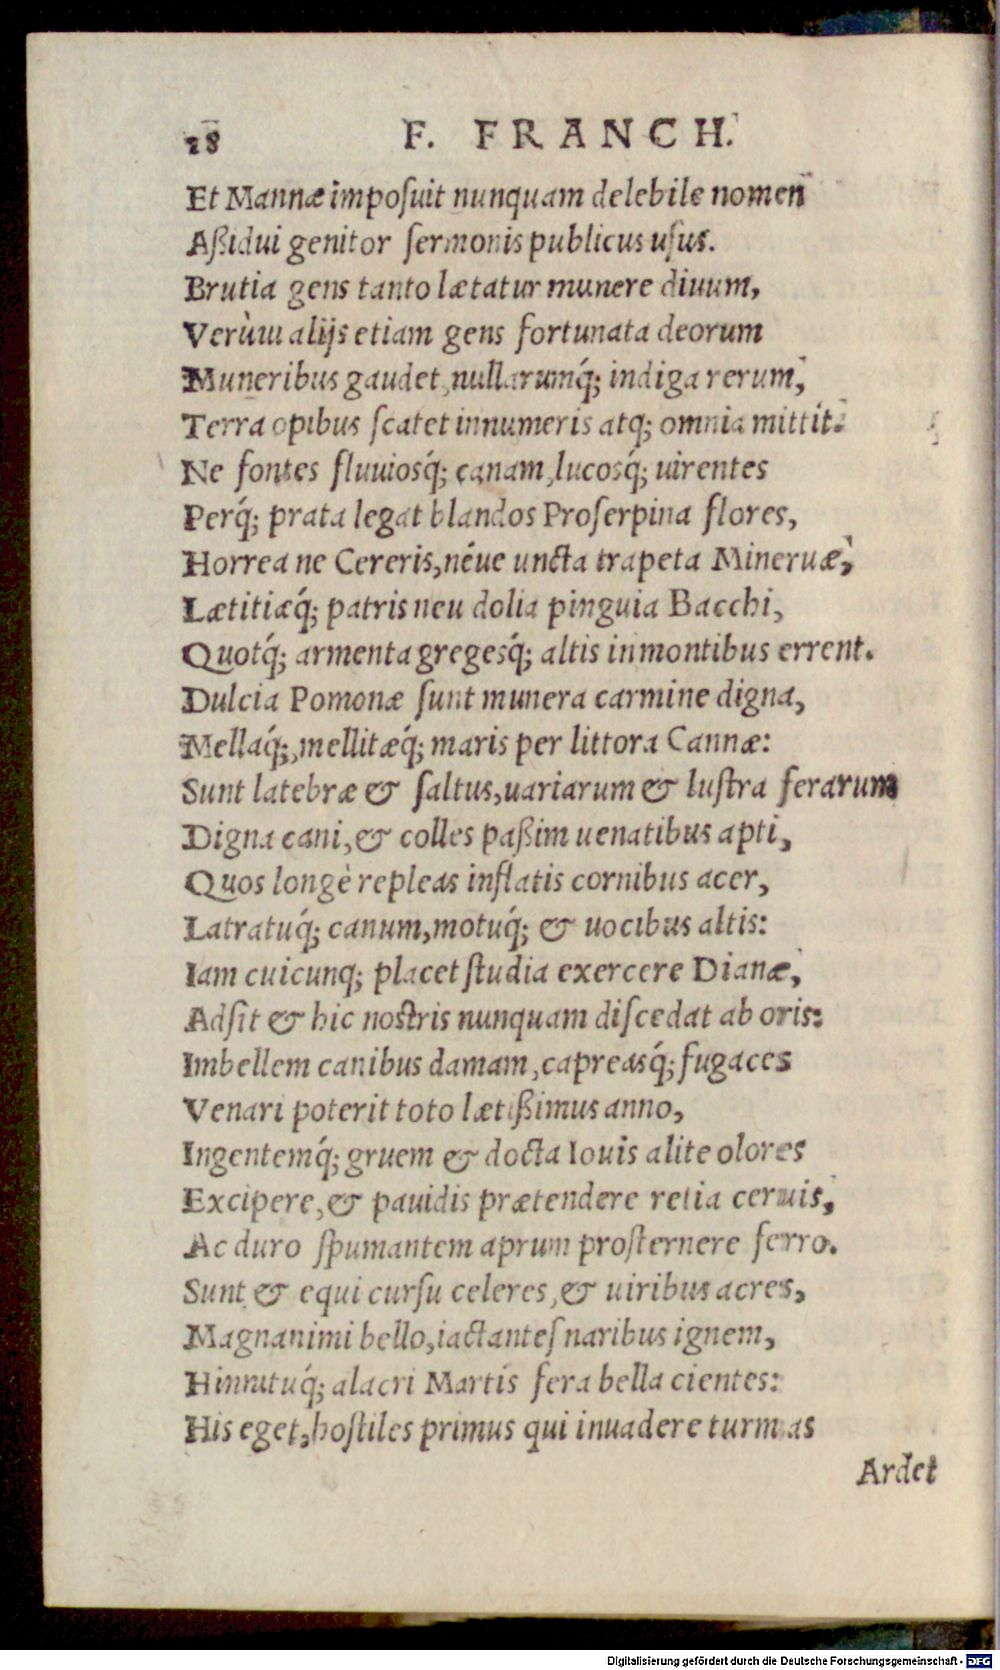 28 F. FRANCH.
Et Mannæ imposuit nunquam delebile nomen
Aßidui genitor sermonis publicus usus.
Brutia gens tanto lætatur munere diuum,
Verùm alijs etiam gens fortunata deorum
Muneribus gaudet, nullarumq́; indiga rerum,
Terra opibus scatet innumeris atq; omnia mittit.
Ne fontes fluuiosq́; canam, lucosq́; uirentes
Perq́; prata legat blandos Proserpina flores,
Horrea ne Cereris, néue uncta trapeta Mineruæ,
Lætitiæq́; patris neu dolia pinguia Bacchi,
Quotq́; armenta gregesq́; altis in montibus errent.
Dulcia Pomonæ sunt munera carmine digna,
Mellaq́;, mellitæq́; maris per littora Cannæ:
Sunt latebræ & saltus, uariarum & lustra ferarum
Digna cani, & colles paßim uenatibus apti,
Quos longè repleas inflatis cornibus acer,
Latratuq́; canum, motuq́; & uocibus altis:
Iam cuicunq; placet studia exercere Dianæ,
Adsit & hic nostris nunquam discedat ab oris:
Imbellem canibus damam, capreasq́; fugaces
Venari poterit toto lætißimus anno,
Ingentemq́; gruem & docta Iouis alite olores
Excipere, & pauidis prætendere retia ceruis,
Ac duro spumantem aprum prosternere ferro.
Sunt & equi cursu celeres, & uiribus acres,
Magnanimi bello, iactantes naribus ignem,
Hinnituq́; alacri Martis fera bella cientes:
His eget, hostiles primus qui inuadere turmas
Ardet
Digitalisierung gefördert durch die Deutsche Forschungsgemeinschaft - DFG